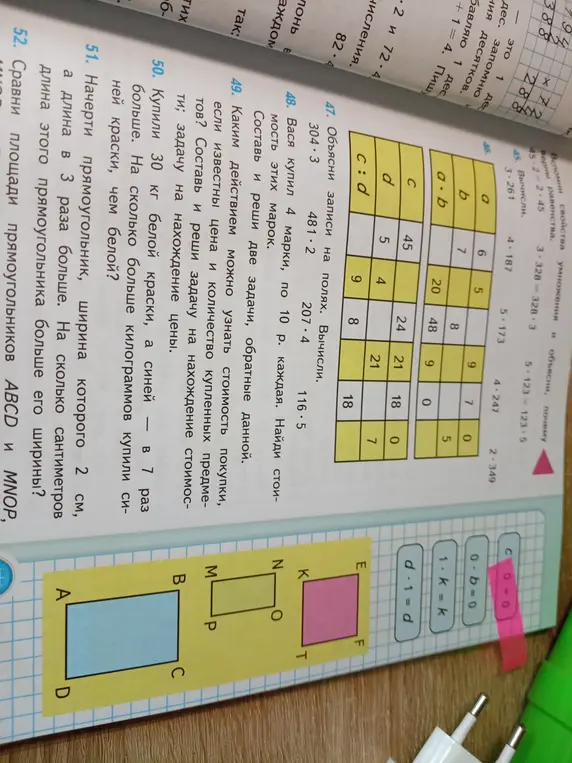 — это 1
дес. запомню
ния десятков
бавляю 1 дес
+ 1 = 4. Пиш
· 2 и 72 · 4
числения.
82 ·
так:
Вспомни свойства умножения и объясни, почему
верны равенства.
45 · 2 = 2 · 45 3 · 328 = 328 · 3 5 · 123 = 123 · 5
45. Вычисли.
3 · 261 4 · 187 5 · 173 4 · 247 2 · 349
46.
a 6 5 9 7 0
b 7 8 5
a · b 20 48 9 0
c 45 24 21 18 0
d 5 4 21 7
c : d 9 8 18
47. Объясни записи на полях. Вычисли.
304 · 3 481 · 2 207 · 4 116 · 5
48. Вася купил 4 марки, по 10 р. каждая. Найди стои-
мость этих марок.
Составь и реши две задачи, обратные данной.
49. Каким действием можно узнать стоимость покупки,
если известны цена и количество купленных предме-
тов? Составь и реши задачу на нахождение стоимос-
ти; задачу на нахождение цены.
50. Купили 30 кг белой краски, а синей — в 7 раз
больше. На сколько больше килограммов купили си-
ней краски, чем белой?
51. Начерти прямоугольник, ширина которого 2 см,
а длина в 3 раза больше. На сколько сантиметров
длина этого прямоугольника больше его ширины?
52. Сравни площади прямоугольников ABCD и MNOP,
0 = 0
0 · b = 0
1 · k = k
d · 1 = d
E F
K T
N O
M P
B C
A D